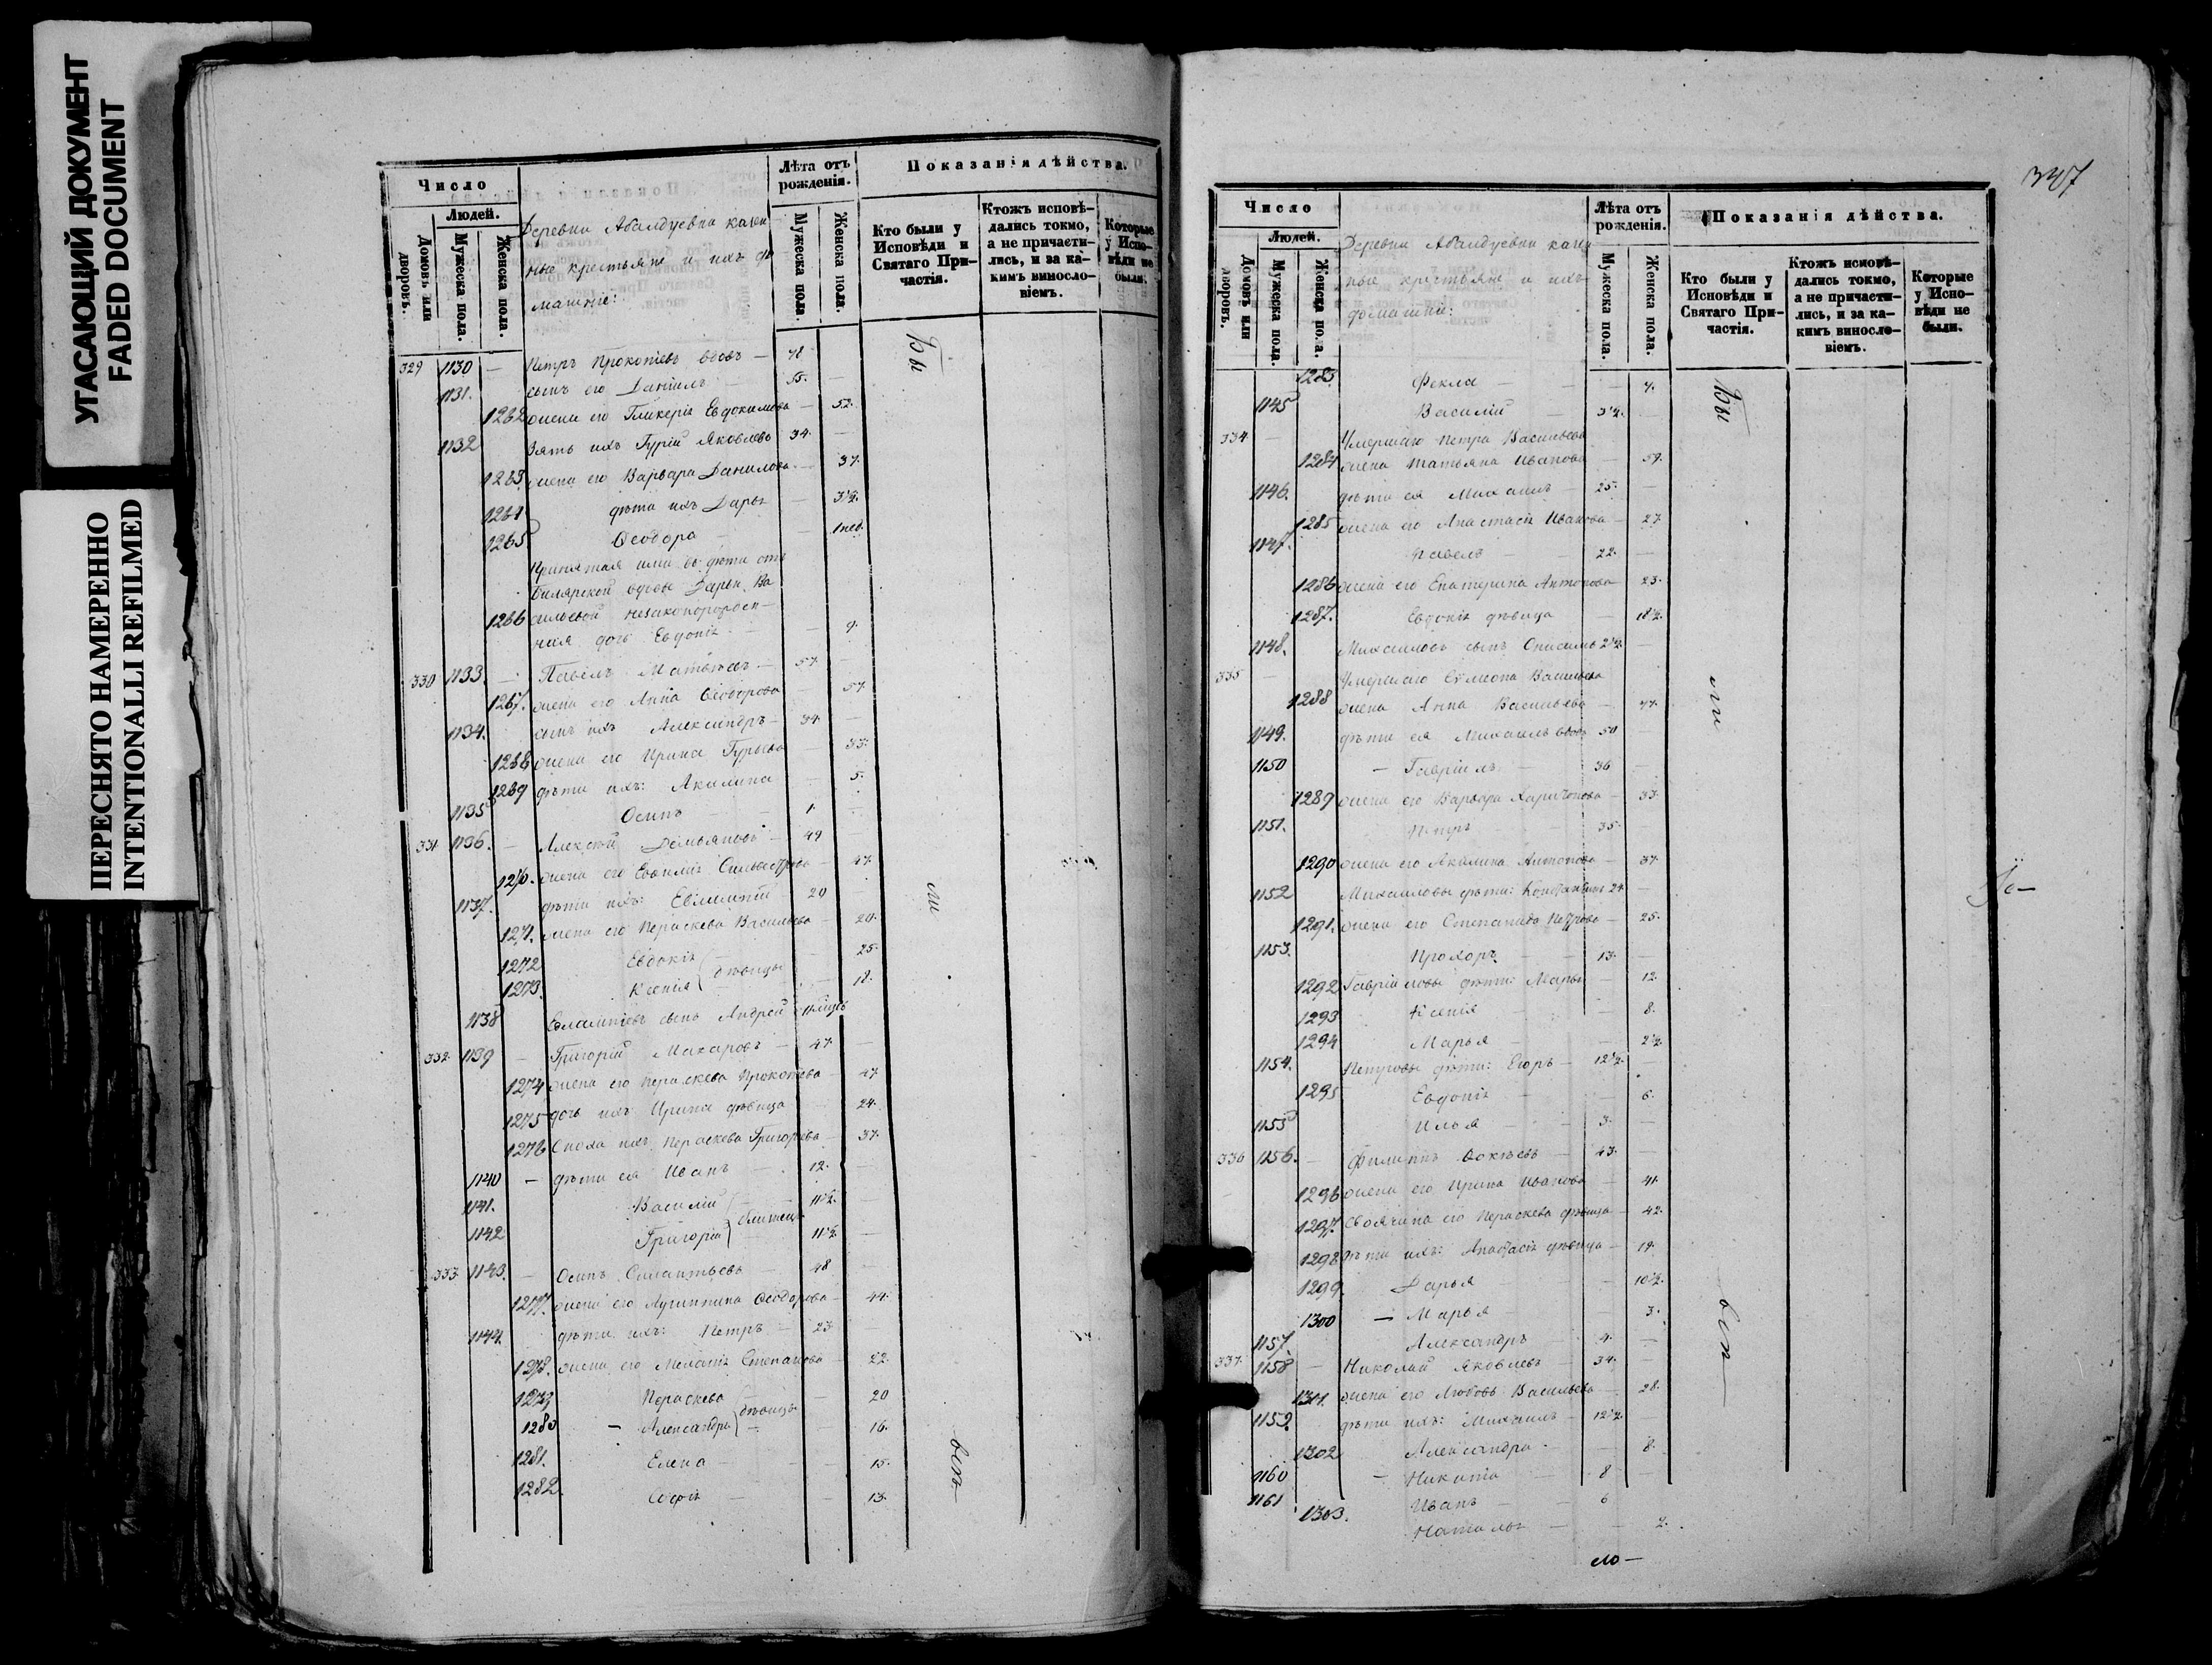 УГАСАЮЩИЙ ДОКУМЕНТ
FADED DOCUMENT
ПЕРЕСНЯТО НАМЕРЕННО
INTENTIONALLI REFILMED
Число
Людей.
Домовъ или дворовъ.
Мужеска пола.
Женска пола.
Деревни Абалдуевки казен
ные крестьяне и ихъ до
машніе:
Лѣта отъ рожденія.
Мужеска пола.
Женска пола.
Показанія дѣйства.
Кто были у Исповѣди и Святаго При-частія.
Ктожъ исповѣ-дались токмо, а не причасти-лись, и за ка-кимъ винословіемъ.
Которые у Испо-вѣди не были.
329 1130 — Петръ Прокопіевъ вдовъ — 78
1131. сынъ его Даніилъ — 55. —
1262 жена его Гликерія Евдокимова — 52.
1132 Зять ихъ Гурій Яковлевъ 34. —
1263. жена его Варвара Данилова — 37.
1264 дѣти ихъ Дарья — 3½.
1265 Ѳеодора — 1 нед.
Принятая ими въ дѣти отъ
Билярской вдовы Дарьи Ва
1266 сильевой незаконорожден-
ная дочь Евдокія — 9.
330 1133. — Павелъ Матвѣевъ — 57. —
1267. жена его Анна Ѳеодорова — 57.
1134. сынъ ихъ Александръ — 34. —
1268 жена его Ирина Гурьева — 33.
1269 дѣти ихъ: Акилина — 5.
1135 Осипъ — 1.
331 1136. — Алексѣй Демьяновъ — 49 —
1270. жена его Евѳимія Сильвестрова — 47.
1137. дѣти ихъ: Евлампій 20 —
1271. жена его Параскева Васильева — 20.
1272 Евдокія — 25.
1273. Ксенія } дѣвицы — 18.
1138 Евлампіевъ сынъ Андрей
332 1139 — Григорій Макаровъ — 47. —
1274 жена его Параскева Прокопьева — 47
1275 дочь ихъ Ирина дѣвица — 24.
1276 Сноха ихъ Параскева Григорьева — 37.
1140 — дѣти ея Иванъ — 12. —
1141. Василій — 11½.
1142 Григорій } близнецы 11½. —
333 1143. — Осипъ Силантьевъ — 48 —
1277. жена его Агриппина Ѳеодорова — 44.
1144. дѣти ихъ: Петръ — 23 —
1278. жена его Меланія Степанова — 22.
1279 Параскева — 20
1280 — Александра } дѣвицы — 16.
1281. Елена — 15.
1282. Софія — 13.
Бы
ли
всѣ
347
Число
Людей.
Домовъ или дворовъ.
Мужеска пола.
Женска пола.
Деревни Абалдуевки казен
ные крестьяне и ихъ
домашніи:
Лѣта отъ рожденія.
Мужеска пола.
Женска пола.
Показанія дѣйства.
Кто были у Исповѣди и Святаго При-частія.
Ктожъ исповѣ-дались токмо, а не причасти-лись, и за ка-кимъ винословіемъ.
Которые у Испо-вѣди не были.
1283 Ѳекла — 7.
1145 Василій — 3½. —
334 — Умершаго Петра Васильева
1284 жена Татьяна Иванова — 59.
1146. дѣти ея Михаилъ — 25. —
1285 жена его Анастасія Иванова — 27
1147. Павелъ — 22. —
1286 жена его Екатерина Антонова — 23.
1287. Евдокія дѣвица — 18½.
1148. Михаиловъ сынъ Онисимъ 2½ —
335 — Умершаго Симеона Васильева
1288 жена Анна Васильева — 77.
1149. дѣти ея Михаилъ вдовъ 50 —
1150 — Гавріилъ — 36 —
1289 жена его Варвара Харитонова — 33
1151. Петръ — 35. —
1290 жена его Акилина Антонова — 37.
1152 Михаиловы дѣти: Константинъ 24. —
1291. жена его Степанида Петрова — 25.
1153. Прохоръ — 13. —
1292 Гавріиловы дѣти: Марья — 12.
1293 Ксенія — 8.
1294 Марья — 2½.
1154. Петровы дѣти: Егоръ — 12½. —
1295 Евдокія — 6.
1155 Илья — 3. —
336 1156. — Филиппъ Ѳокѣевъ — 43. —
1296 жена его Ирина Иванова — 41.
1297. Своячина его Параскева дѣвица — 42.
1298 дѣти ихъ: Анастасія дѣвица — 19.
1299. Дарья — 10½.
1300 — Марья — 3.
1157. Александръ — 4. —
337. 1158 — Николай Яковлевъ — 34. —
1301. жена его Любовь Васильева — 28.
1159. дѣти ихъ: Михаилъ — 12½. —
1302 Александра — 8.
1160 — Никита — 8 —
1161 Иванъ — 6
1303. Наталья — 2.
Бы
ли
всѣ —
ло —